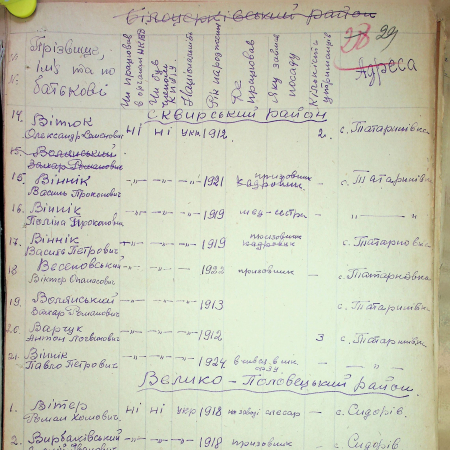 Білоцерківський район
28 29
Прізвище, імя та по батькові
Чи працював в органах НКВД
Чи був членом КП/б/У
Національність
Рік народження
Де працював
Яку займав посаду
Кількість утриманців
Адреса
Сквирський район
14. Віток Олександр Романович ні ні укр 1912 2. с. Татаринівка
15. Волинський Захар Романович
15. Віннік Василь Прокопович -"- -"- -"- 1921 призовник кадровик - с. Татаринівка
16. Віннік Поліна Прокопівна -"- -"- -"- 1919 мед-сестра - -"- -"-
17. Віннік Василь Петрович -"- -"- -"- 1919 призовник кадровик - с. Татарновка
18 Весеновський Віктор Опанасович -"- -"- -"- призовник - с. Татарновка
19. Волинський Захар Романович -"- -"- -"- 1913 с. Татаринівка
20. Варчук Антон Логвинович -"- -"- -"- 1912 3 с. Татаринівка
21. Віннік Павло Петрович -"- -"- -"- 1924 - -"- -"-
Велико-Половецький район.
1. Вітер Роман Хомович. ні ні укр 1918 на заводі слесар - с. Сидорів.
2. Вирваківський -"- -"- -"- 1918 призовник - с. Сидорів